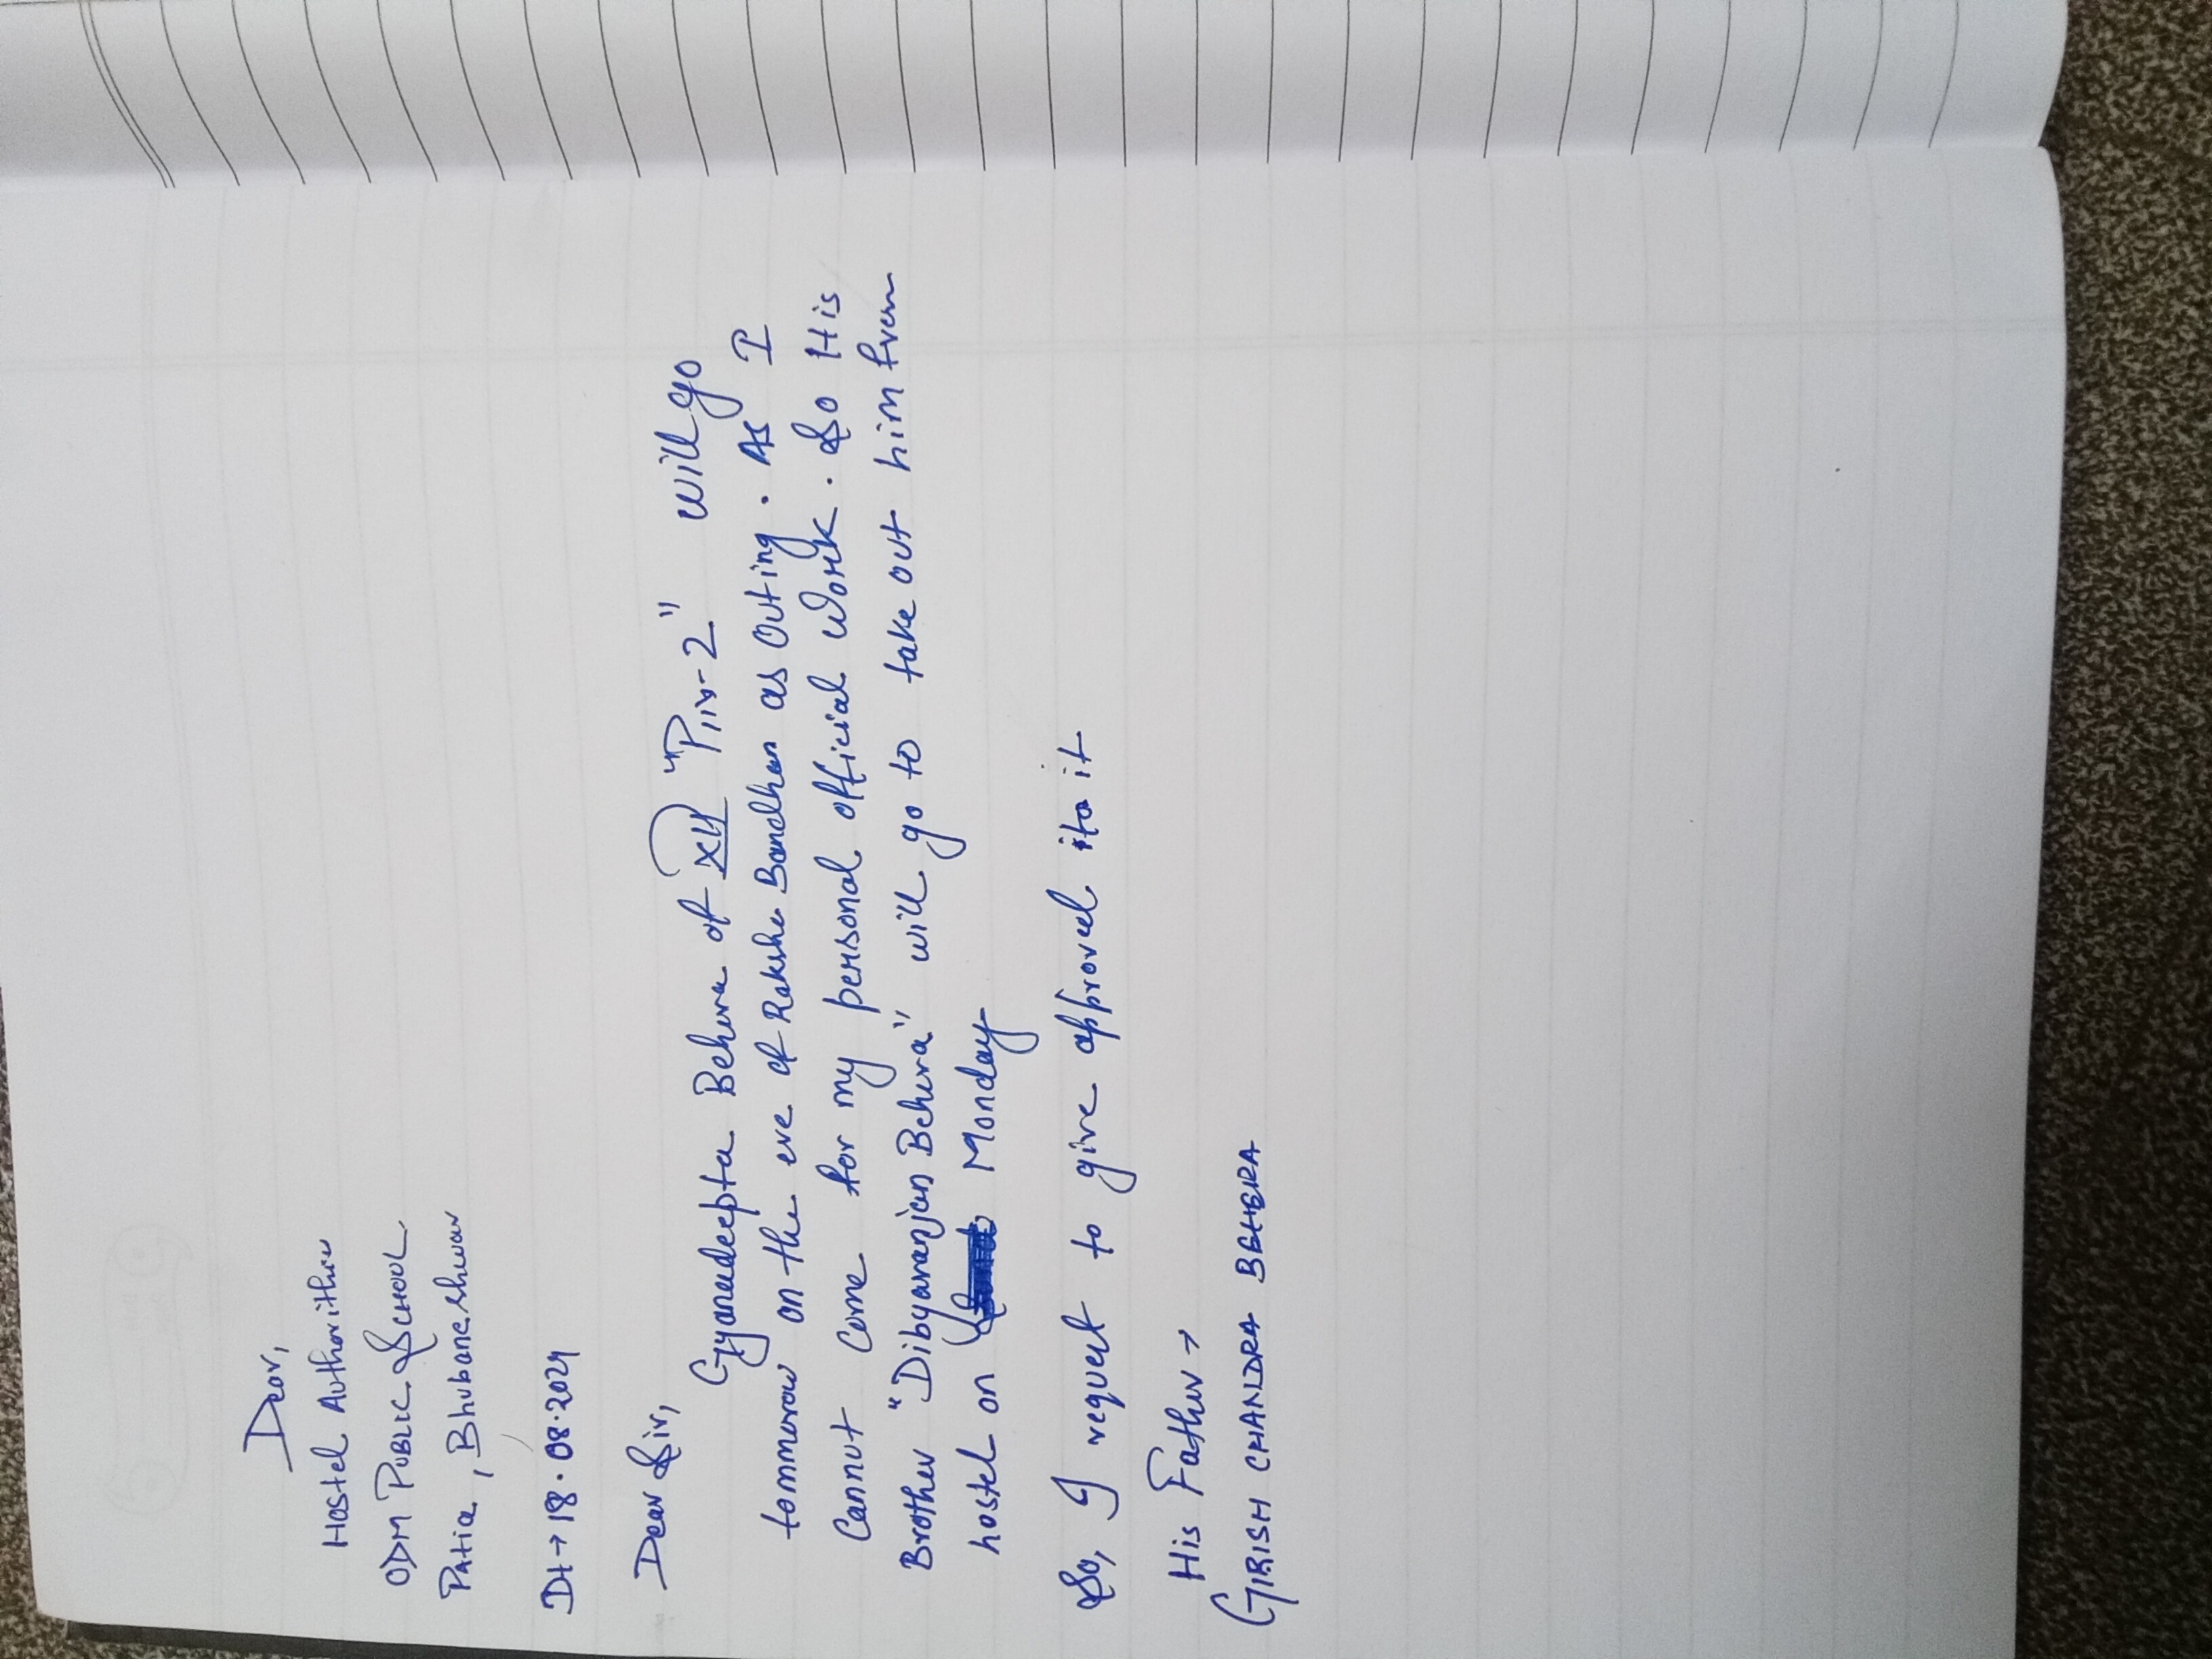 Dear,
Hostel Authorities
ODM PUBLIC SCHOOL
Patia, Bhubaneshwar
Dt→18.08.2024
Dear Sir,
Gyanadeepta Behera of XII "Piiv-2" will go
tommorow on the eve of Raksha Bandhan as Outing. As I
Cannot Come for my personal official work. So His
Brother "Dibyaranjan Behera" will go to take out him from
hostel on Monday
So, I request to give approvel to it
His Father→
GIRISH CHANDRA BEHERA